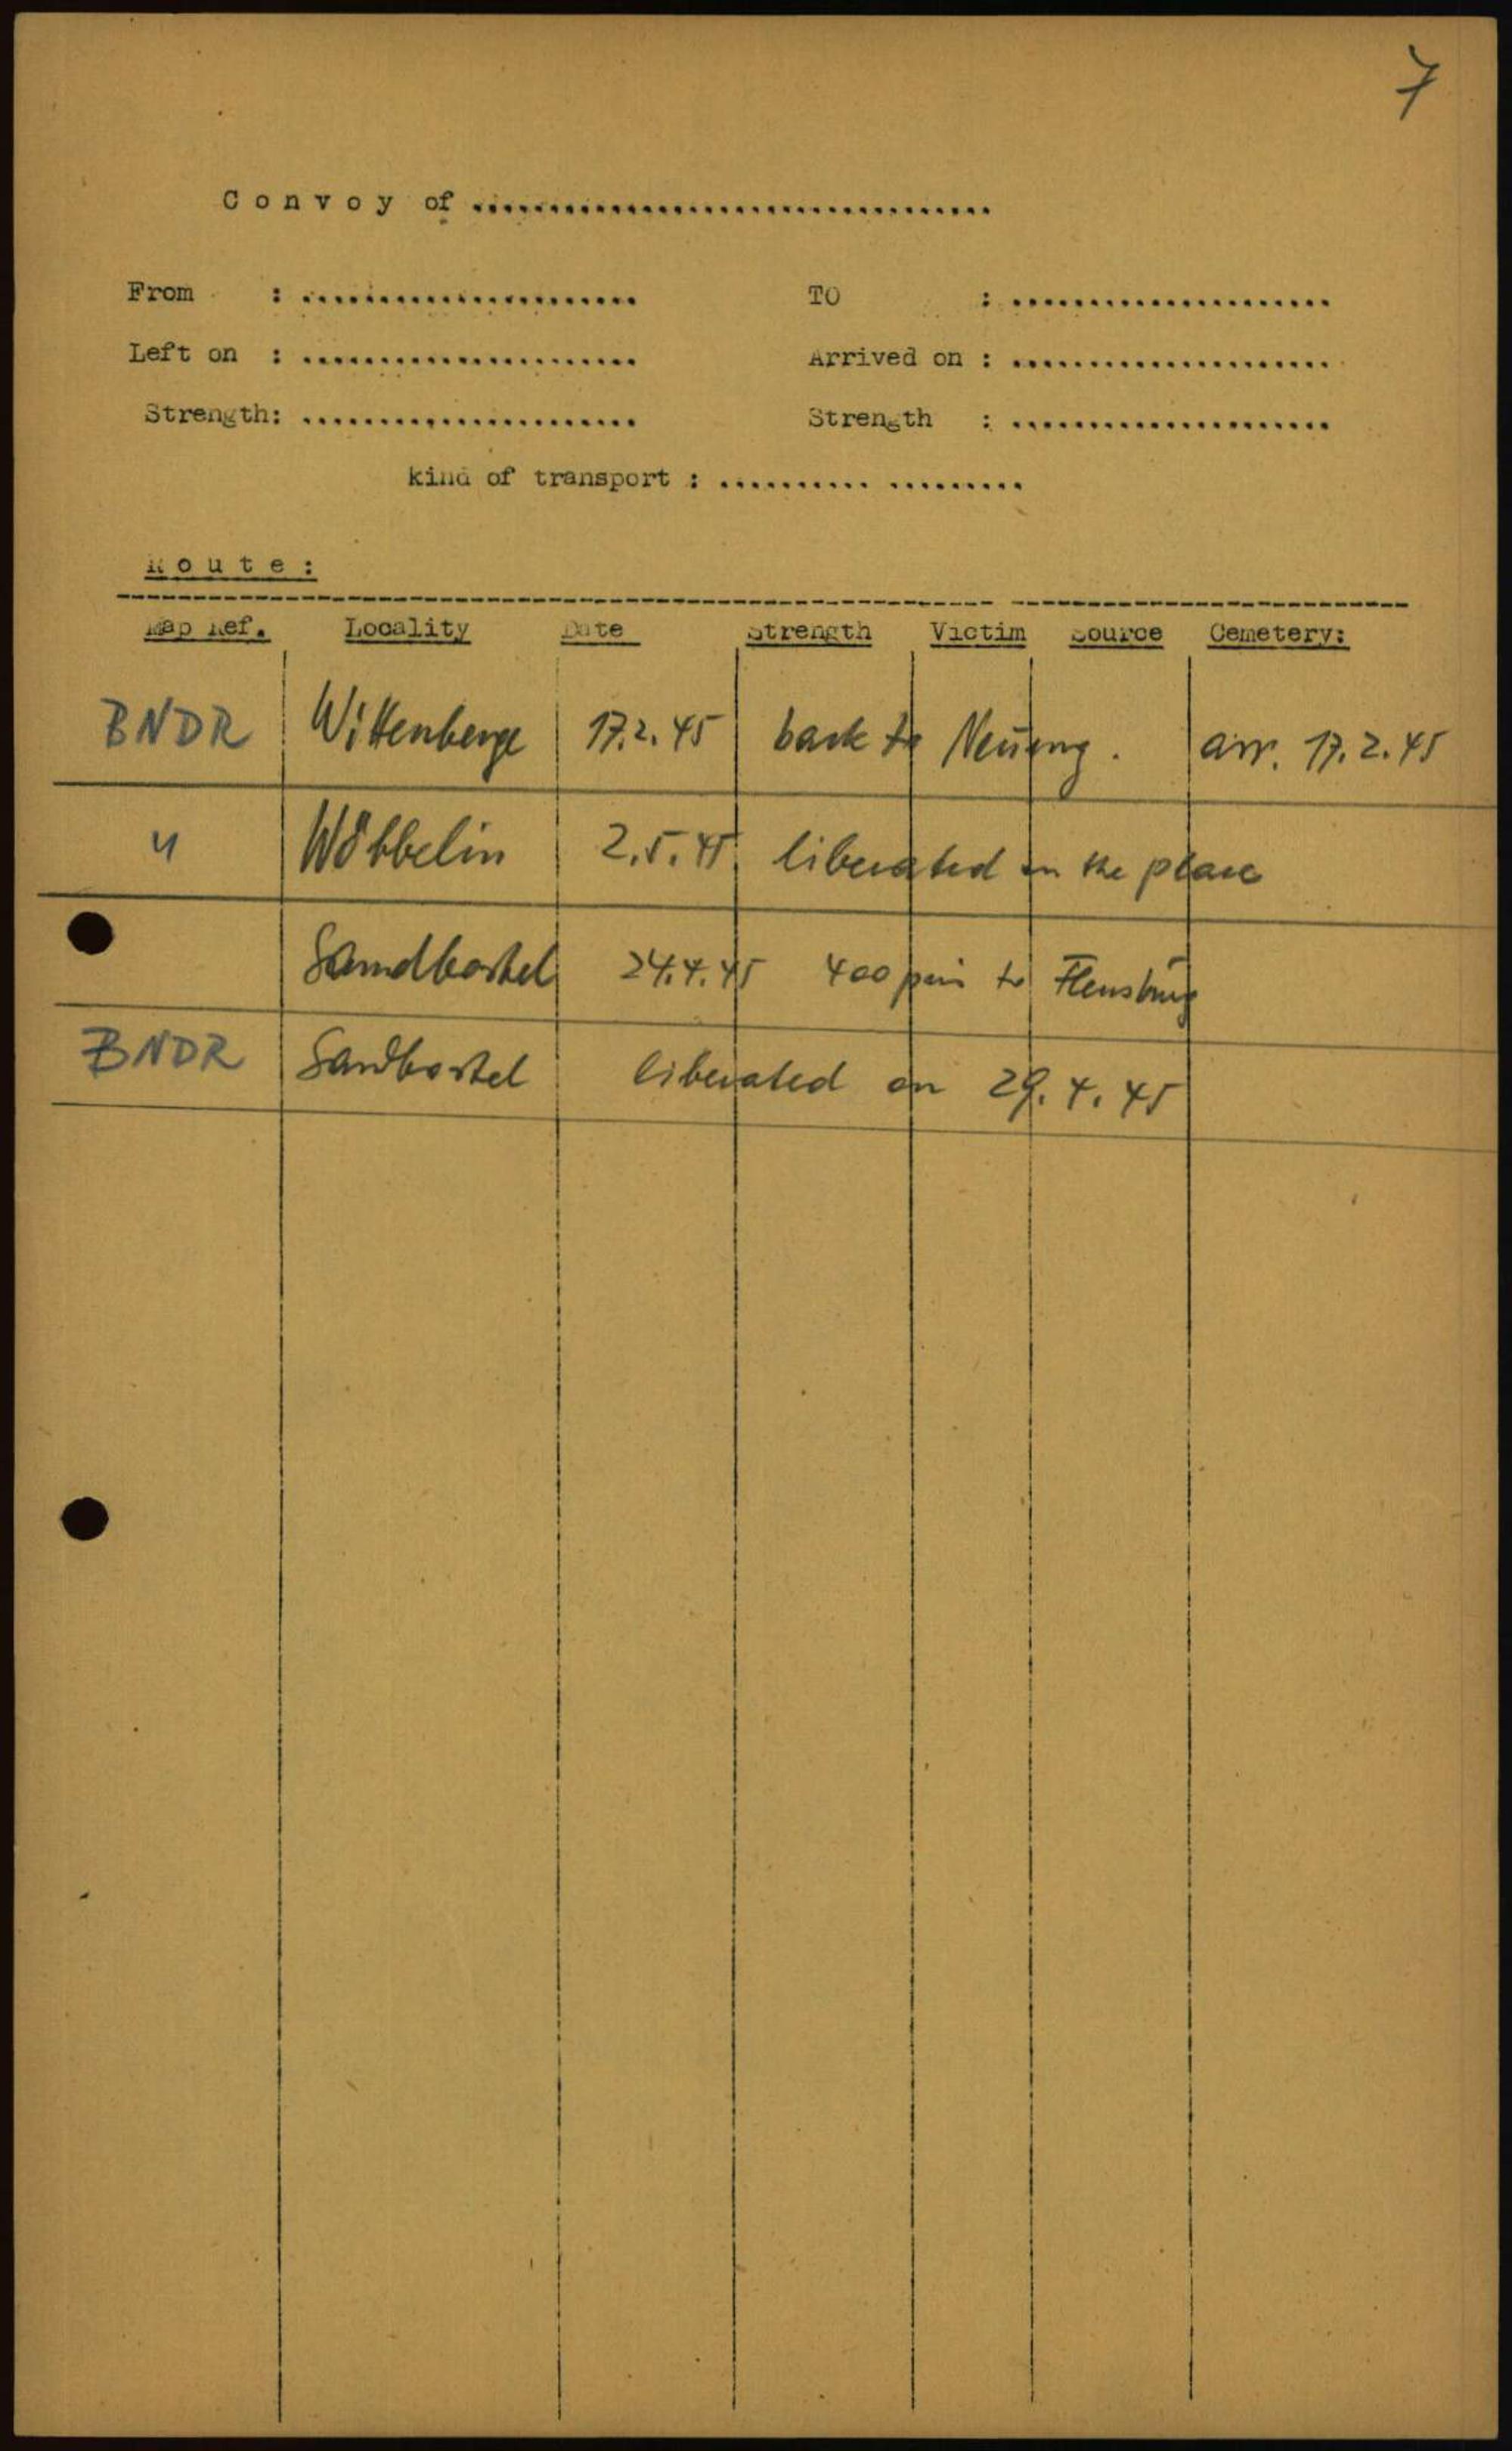 7
Convoy of ........................................
From : ...................... TO : .....................
Left on : ...................... Arrived on : .....................
Strength: ...................... Strength : .....................
kind of transport : .......... .........
Route:
Map Ref. Locality Date Strength Victim Source Cemetery:
BNDR Wittenberge 17.2.45 back to Neueng. arr. 17.2.45
" Wöbbelin 2.5.45 liberated on the place
Sandbostel 24.4.45 400 to Flensburg
BNDR Sandbostel liberated on 29.4.45